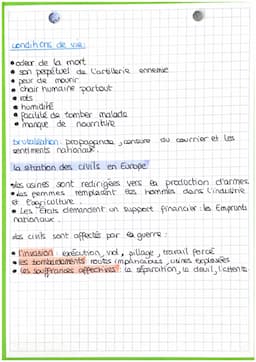 conditions de vie:
• odeur de la mort
• son perpétuel de l'artillerie ennemie
• peur de mourir
• chair humaine partout
• rats
• humidité
• facilité de tomber malade
• manque de nourriture
brutalisation: propagande, censure du courrier et les
sentiments nationaux.
la situation des civils en Europe
•les usines sont redirigées vers la production d'armes
•les femmes remplacent les hommes dans l'industrie
et l'agriculture.
• Les États demandent un support financier: les Emprunts
nationaux.
Les civils sont affectés par la guerre:
• l'invasion: exécution, viol, pillage, travail forcé
• les bombardements: routes impraticables, usines explosées
• les souffrances affectives: la séparation, le deuil, l'attente